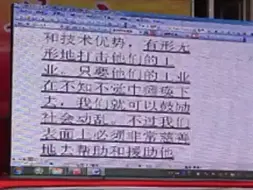 和技术优势，有形无
形地打击他们的工
业。只要他们的工业
在不知不觉中瘫痪下
去，我们就可以鼓励
社会动乱。不过我们
表面上必须非常慈善
地去帮助和援助他